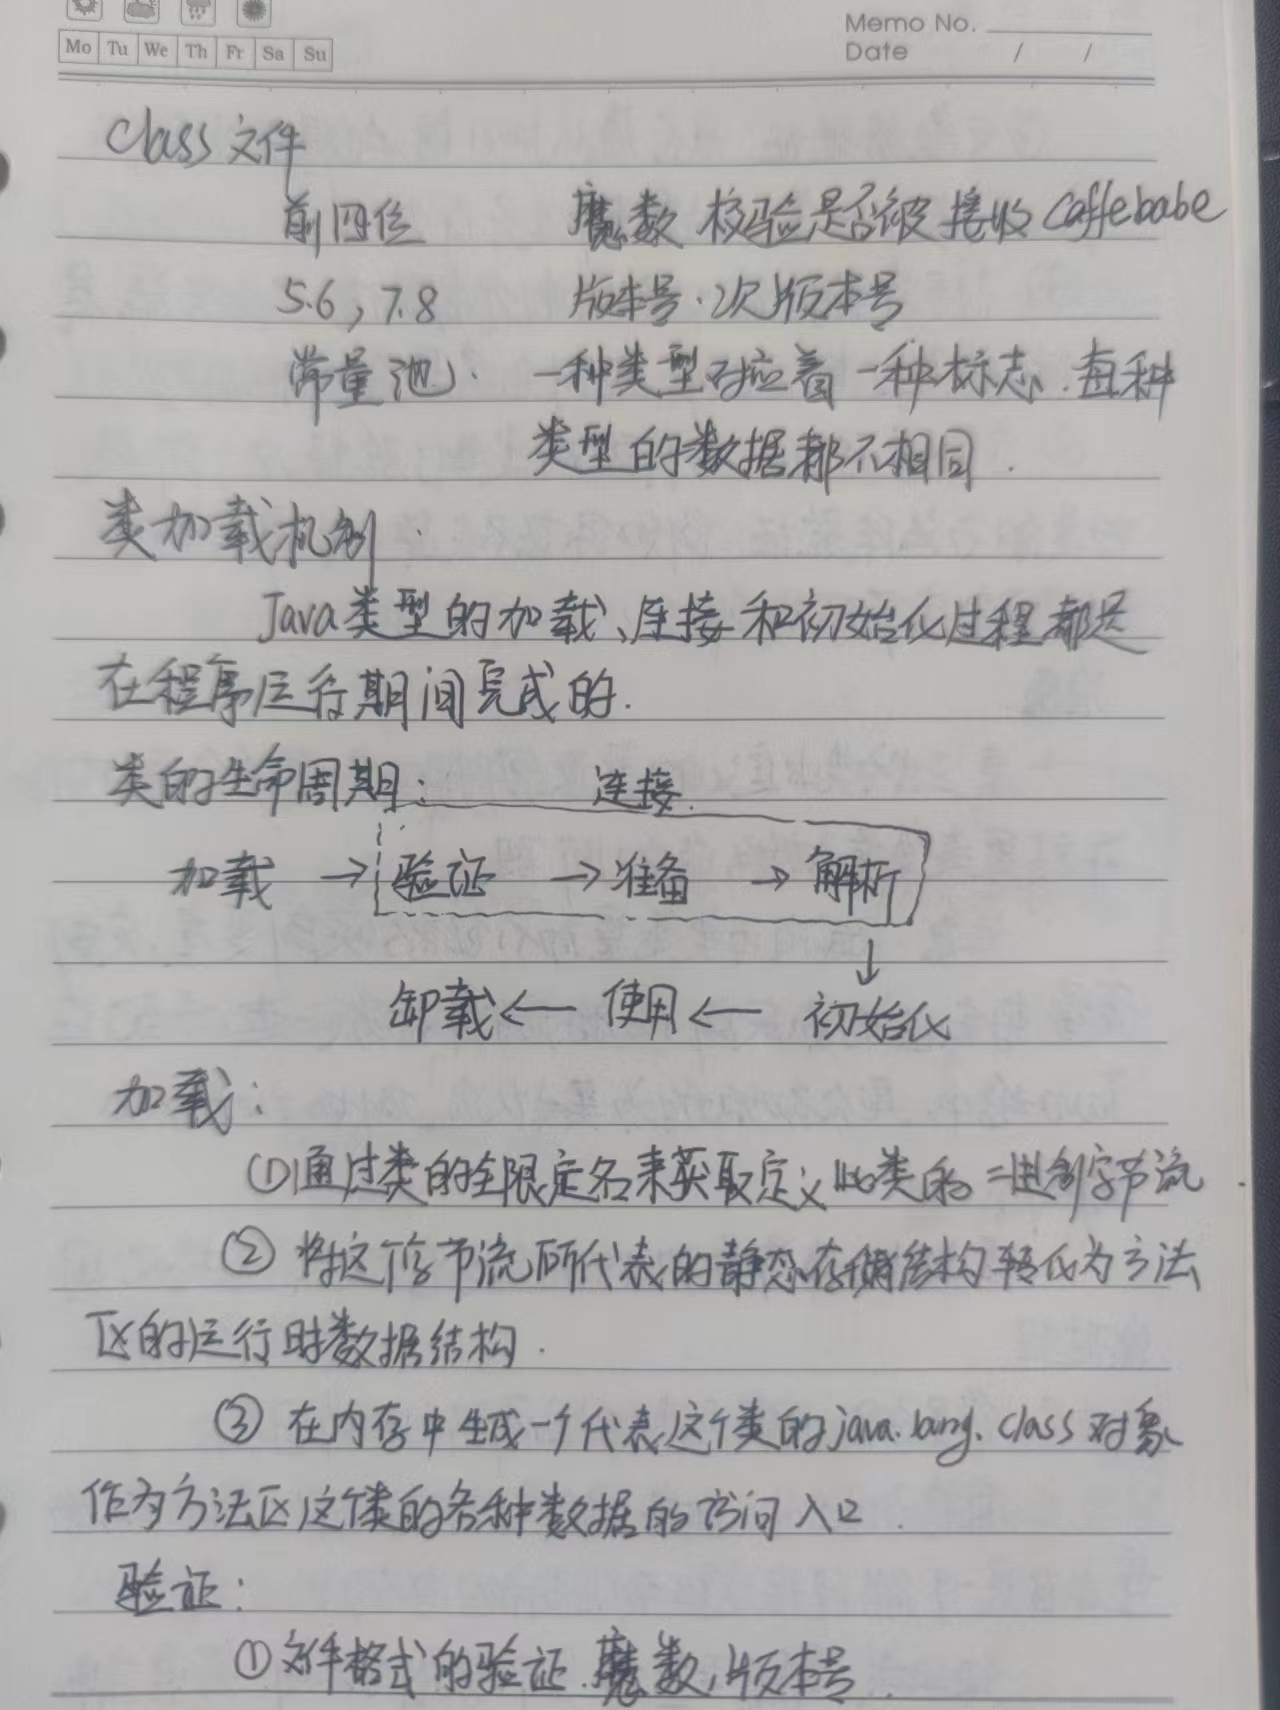 Memo No.
Mo Tu We Th Fr Sa Su
Date / /
Class文件
前四位 魔数 校验是否被接收 Caffebabe
5.6, 7.8 版本号.次版本号
常量池. 一种类型对应着一种标志.每种
类型的数据都不相同.
类加载机制.
Java类型的加载、连接和初始化过程都是
在程序运行期间完成的.
类的生命周期: 连接.
加载 → 验证 → 准备 → 解析
↓
卸载 ← 使用 ← 初始化
加载:
①通过类的全限定名来获取定义此类的二进制字节流
② 将这个字节流所代表的静态存储结构转化为方法
区的运行时数据结构.
③ 在内存中生成一个代表这个类的java.lang.class对象
作为方法区这个类的各种数据的访问入口.
验证:
①文件格式的验证.魔数,版本号.